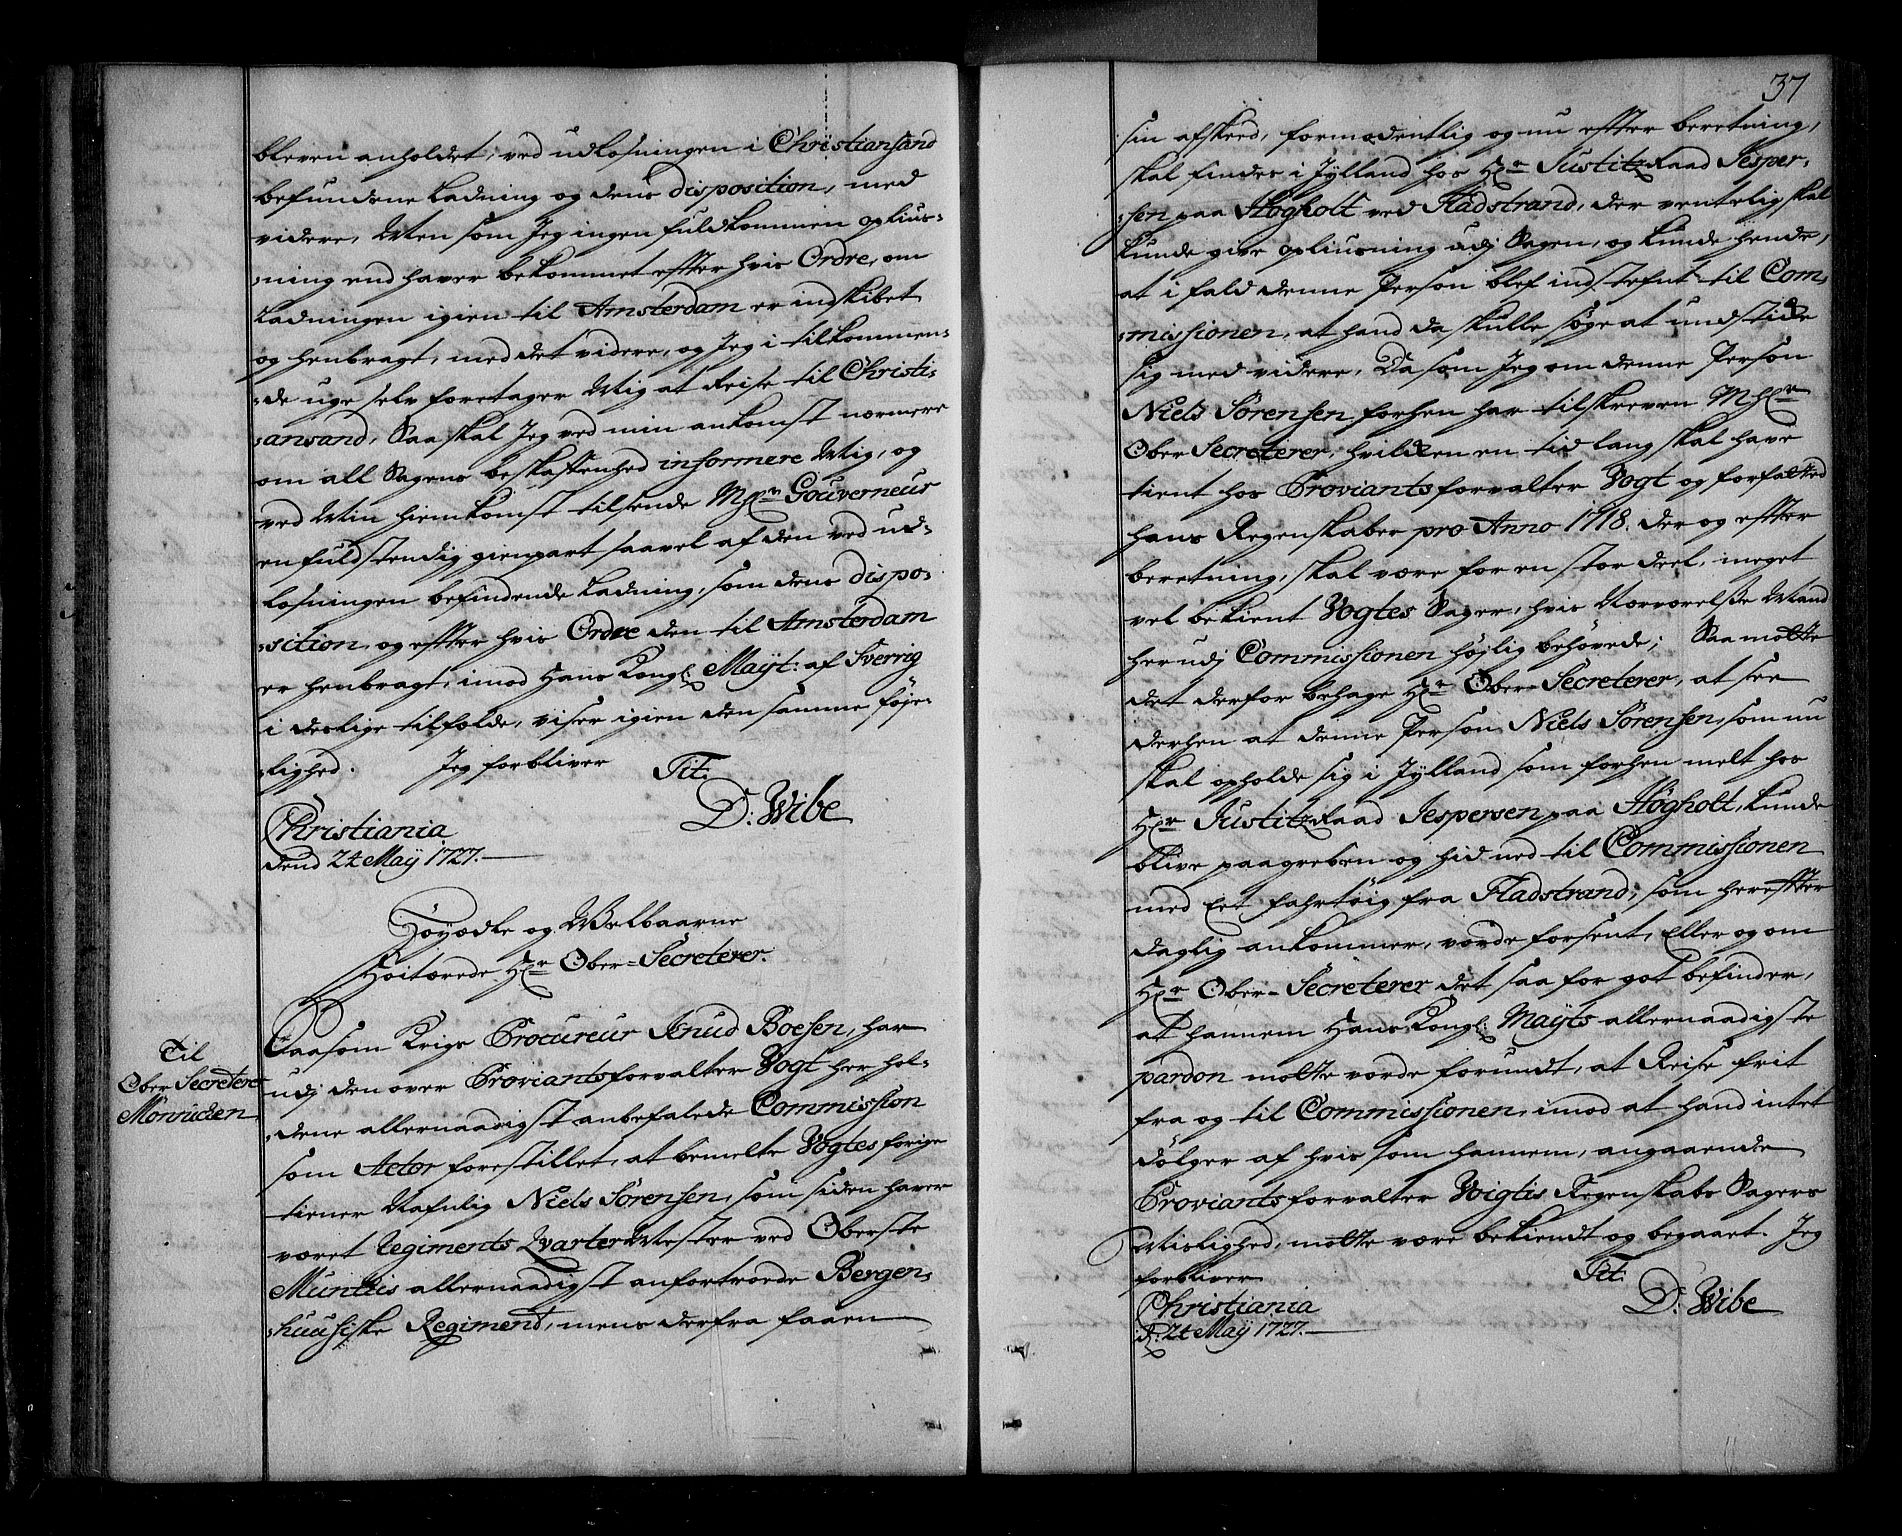 bleven anholdet, ved udlosningen i Christiansand
befundene Ladning og dens disposition, med
videre, Men som Jeg ingen fuldkommen oplius-
:ning end haver bekommet efter hvis Ordre, om
Ladningen igien til Amsterdam er indskibet
og henbragt, med det videre, og Jeg i tilkommen-
:de uge selv foretager Mig at Reise til Christi-
:ansand, Saa skal Jeg ved min ankomst nærmere
om all Sagens beskaffenhed informere Mig, og
ved Min hiemkomst tilsende MHr Gouverneur
en fuldstendig gienpart saavel af den ved ud-
losningen befindende Ladning, som dens dispo-
:sition, og efter hvis Ordre den til Amsterdam
er henbragt, imod Hans Kongl: Mayt: af Sverrig
i deslige tilfælde, viser igien den samme føje-
:lighed. Jeg forbliver Tit:
D: Wibe
Christiania
dend 24 May 1727.
Höyædle og Welbaarne
Høitærede Hr Ober-Secreterer.
Til
Ober Secreterer
Mörvichen
Saasom Krigs Procureur Knud Boesen, har
udj den over Proviantsforvalter Vogt her hol-
:dene allernaadigst anbefalede Commission
som Actor forestillet, at bemelte Vogtes forige
tiener Nafnlig Niels Sörensen, som siden haver
været Regiments QvarterMester ved Oberste
Munthis allernaadigst anfortroede Bergen-
:huusiske Regiment, mens derfra faaen
37
sin afskeed, formodentlig og nu efter beretning,
skal findes i Jylland hos Hr Justitz Raad Jesper-
:sen paa Høgholt ved Fladstrand, der ventelig skal
kunde give opliusning udj Sagen, og kunde hende,
at i fald denne Person blef indstefnt til Com-
:missionen, at hand da skulle søge at undstikke
sig med videre, Da som Jeg om denne Person
Niels Sörensen forhen har tilskreven MHr
Ober Secreterer, hvilken en tid lang skal have
tient hos Proviantsforvalter Vogt og forfatted
hans Regenskaber pro Anno 1718. der og efter
beretning, skal være for en stor deel, meget
vel bekient Vogtes Sager, hvis Nærværelße Mand
herudj Commissionen højlig behövede; Saa motte
det derfor behage Hr Ober-Secreterer, at see
derhen at denne Person Niels Sörensen, som nu
skal opholde sig i Jylland som forhen melt hos
Hr Justitz Raad Jespersen paa Høgholt, kunde
blive paagreben og hid ned til Commissionen
med Eet fahrtöig fra Fladstrand, som herefter
daglig ankommer, vorde forsent, Eller og om
Hr Ober-Secreterer det saa for got befinder,
at hannem Hans Kongl: Mayts allernaadigste
pardon motte vorde forundt, at Reise frit
fra og til Commissionen, imod at hand intet
dölger af hvis som hannem, angaaende
Proviantsforvalter Voigtis Regenskabs Sagers
Mislighed, motte være bekiendt og begaaet. Jeg
forbliver Tit:
D: Wibe
Christiania
d: 24 May 1727.